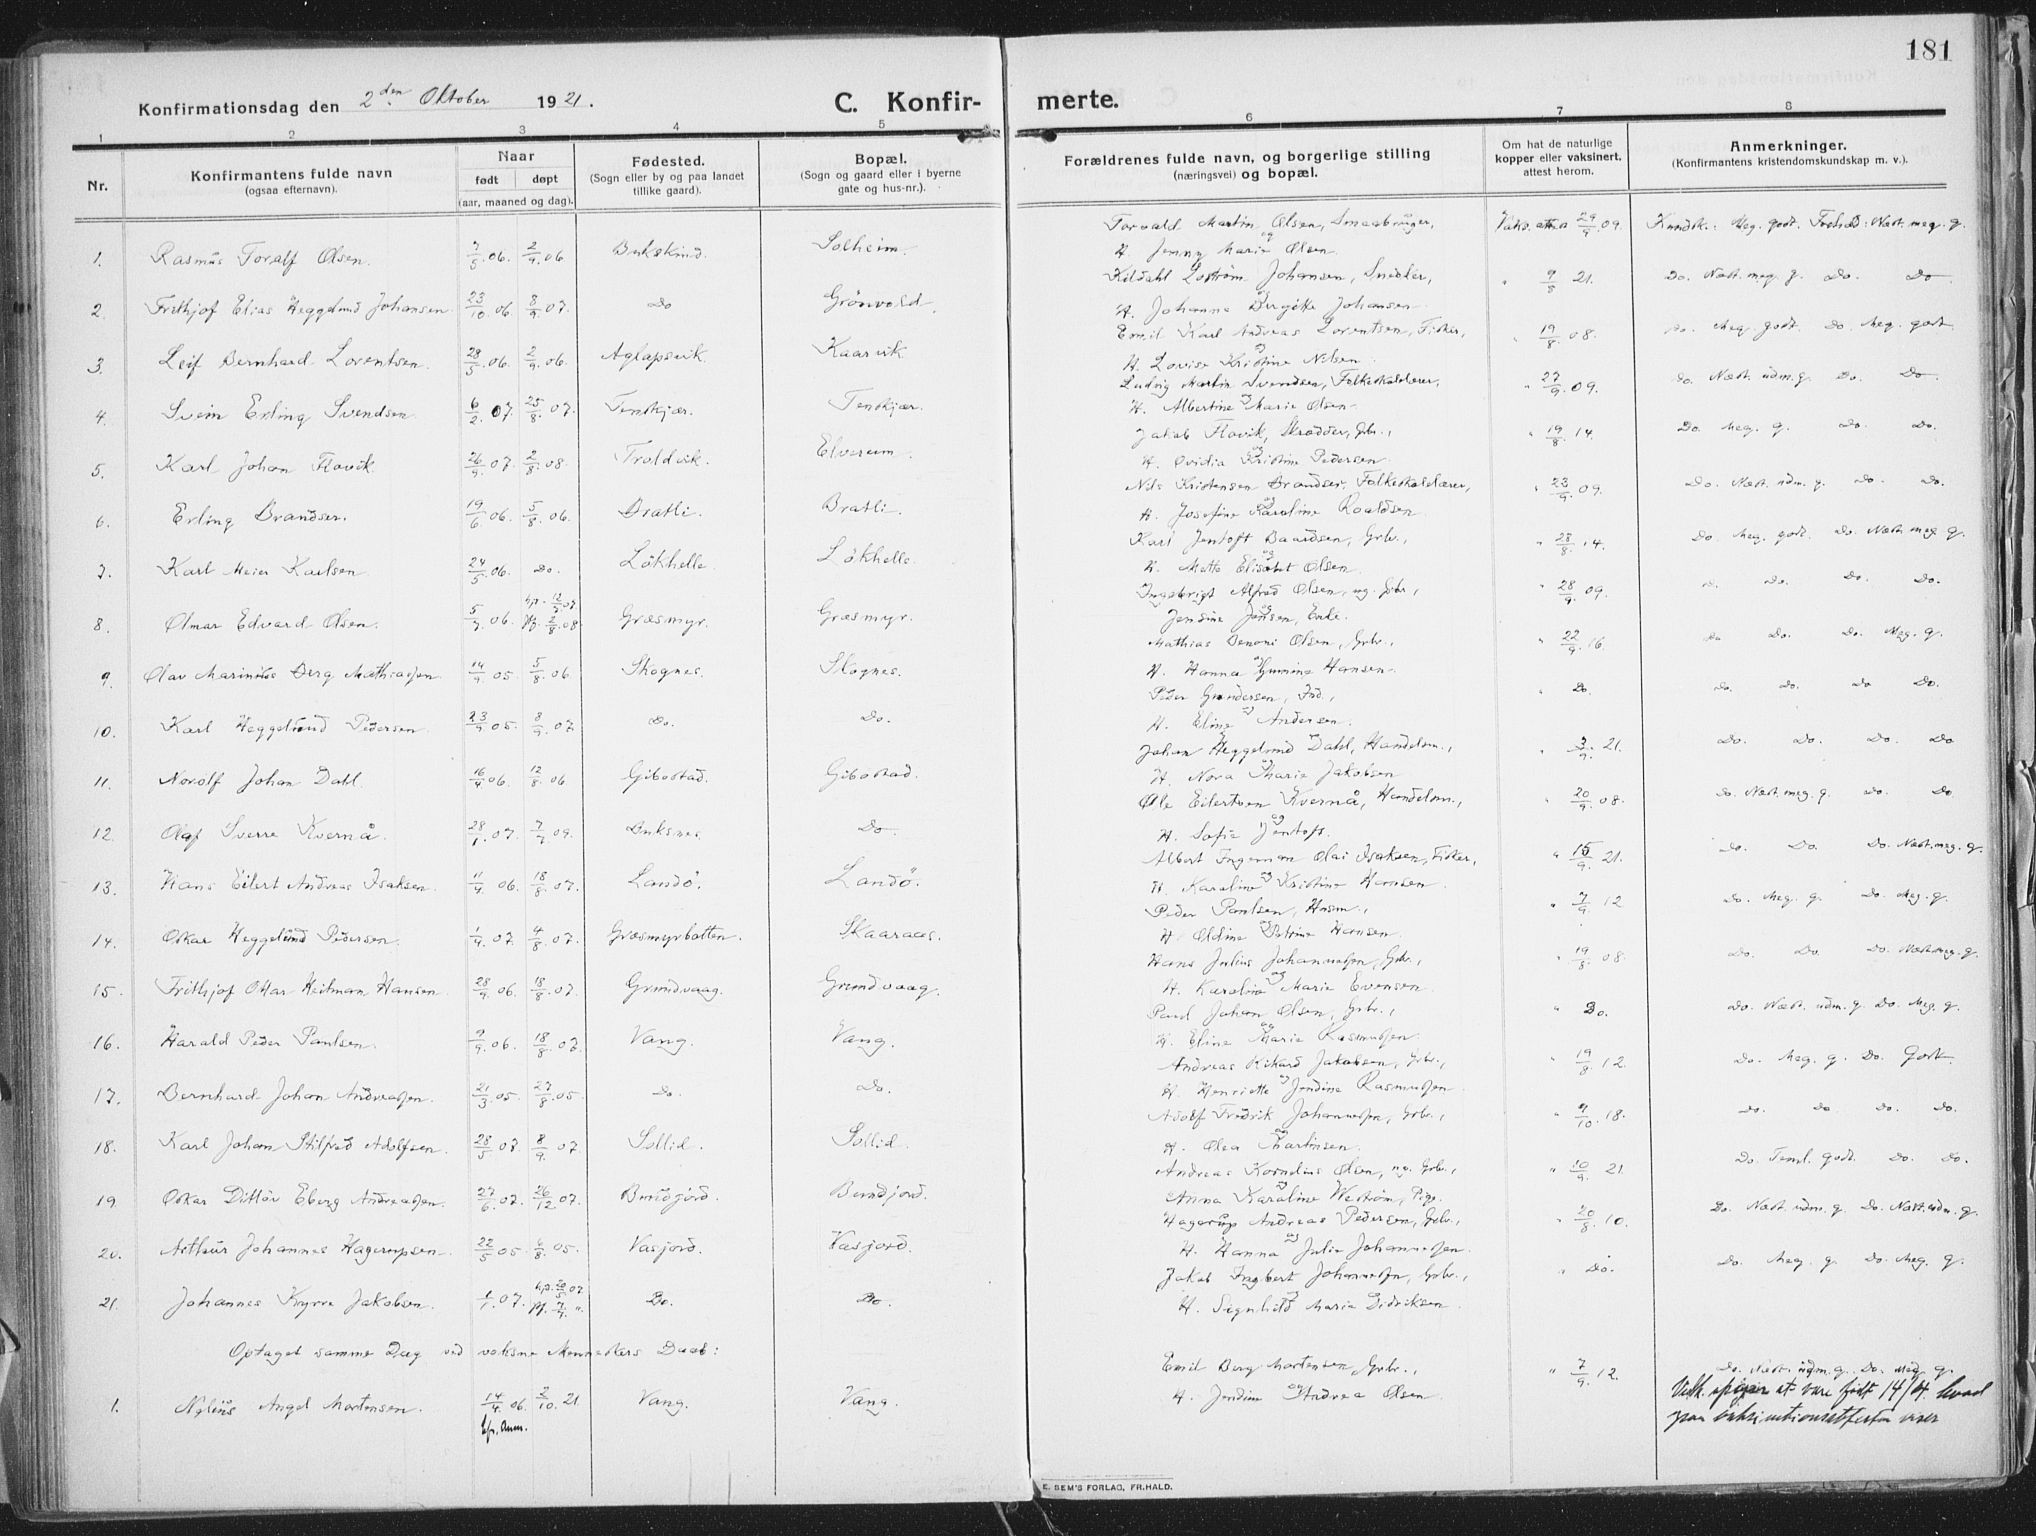 181
Konfirmationsdag den 2den Oktober 1921.
C. Konfirmerte.
1 2 3 4 5 6 7 8
Nr.
Konfirmantens fulde navn
(ogsaa efternavn).
Naar
født døpt
(aar, maaned og dag).
Fødested.
(Sogn eller by og paa landet
tillike gaard).
Bopæl.
(Sogn og gaard eller i byerne
gate og hus-nr.).
Forældrenes fulde navn, og borgerlige stilling
(næringsvei) og bopæl.
Om hat de naturlige
kopper eller vaksinert,
attest herom.
Anmerkninger.
(Konfirmantens kristendomskundskap m. v.).
1. Rasmus Toralf Olsen. 06. 2/9 06 Bukskind. Solheim.
Torvald Martin Olsen, Smaabruger, og
H. Jenny Marie Olsen
Vaks. att. 29/9 09. Kundsk.: Meg. godt. Forhold: Næst. meg. g.
2. Frithjof Elias Heggelund Johansen 23/10 06. 8/9 07. Do Grönvold.
Kildahl Johansen, Snedker, og
H. Johanne Bergitte Johansen
" 9/8 21. Do. Næst. meg. g. Do. Do
3. Leif Bernhard Lorentsen. 28/5 06. 2/9 06. Aglapsvik Kaarvik
Emil Karl Andreas Lorentsen, Fisker, og
H. Lovise Kristine Nilsen.
" 19/8 08. Do. Meg. godt. Do. Meg. godt
4. Svein Erling Svendsen. 6/2 07. 25/8 07. Tenskjær. Tenskjær.
Ludvig Martin Svendsen, Folkeskolelærer, og
H. Albertine Marie Olsen
" 27/9 09. Do. Næst. udm. g. Do. Do.
5. Karl Johan Flovik 26/9 07. 2/8 08. Troldvik. Elvereim.
Jakob Flovik, Skrædder, Gbr., og
H. Ovidia Kristine Pedersen
" 19/8 14. Do. Meg. g. Do. Do.
6. Erling Brandser. 19/6 06. 5/8 06. Bratli. Bratli.
Nils Kristensen Brandser, Folkeskolelærer, og
H. Josefine Karoline Roaldsen
" 23/9 09. Do. Næst. udm. g. Do. Do.
7. Karl Meier Karlsen. 24/5 06. Do. Lökhelle. Lökhelle.
Karl Jentoft Baardsen, Gbr., og
H. Mette Elisabet Olsen
" 28/8 14. Do. Meg. godt. Do. Næst. meg. g.
8. Olmar Edvard Olsen. 06. 07 2/8 08. Græsmyr. Græsmyr.
Ingebrigt Alfred Olsen, ug. Gbr., og
Jensine Jensen, Enke.
" 28/9 09. Do. Do. Do. Do.
9. Olav Marinius Berg Mathiasen. 14/9 05 5/8 06. Skognes. Skognes.
Mathias Benoni Olsen, Gbr., og
H. Hanna Hansen.
" 22/9 16. Do Do. Do. Meg. g.
10. Karl Heggelund Pedersen 23/9 05. 8/9 07. Do. Do.
Peder Gundersen, Ind., og
H. Eline Andersen.
" Do. Do. Do. Do Do.
11. Norolf Johan Dahl. 16/4 06. 12/8 06 Gibostad. Gibostad.
Johan Heggelund Dahl, Handelsm., og
H. Nora Marie Jakobsen
" 3/9 21. Do. Do. Do. Do
12. Olaf Sverre Kvernå. 28/1 07. 7/7 09. Buksnes. Do.
Ole Eilertsen Kvernå, Handelsm., og
H. Sofie Jentoft.
" 20/9 08. Do. Næst. meg. g. Do. Do.
13. Hans Eilert Andreas Isaksen. 11/9 06. 18/8 07. Landö. Landö.
Albert Ingeman Olai Isaksen, Fisker, og
H. Karoline Kristine Hansen
" 15/9 21. Do. Do. Do. Næst. meg. g.
14. Oskar Heggelund Pedersen. 1/4 07. 4/8 07. Græsmyrbotten. Skaaraas.
Peder Paulsen, Husm., og
H. Oldine Petrine Hansen
" 7/9 12 Do. Meg. g. Do. Meg. g.
15. Frithjof Ottar Heitman Hansen 28/9 06. 18/8 07. Grundvaag. Grundvaag.
Hans Julius Johannesen, Gbr., og
H. Karolina Marie Evensen.
" 19/8 08. Do. Do. Do. Næst. meg. g.
16. Harald Peder Paulsen. 9/9 06. 18/8 07. Vang. Vang.
Paul Johan Olsen, Gbr., og
H. Eline Marie Rasmussen
" Do. Do. Næst. udm. g. Do. Meg. g.
17. Bernhard Johan Andreassen. 21/3 05. 27/8 05. Do. Do.
Andreas Rikard Jakobsen, Gbr., og
H. Henriette Jendine Rasmussen
" 19/8 12. Do. Meg. g. Do. Godt.
18. Karl Johan Stilfred Adolfsen. 28/5 07. 8/9 07. Sollid. Sollid.
Adolf Fredrik Johannesen, Gbr., og
H. Olea Martinsen.
" 9/10 18. Do. Do. Do. Do.
19. Oskar Ditlöv Eberg Andreassen. 27/6 07. 26/12 07. Bundjord. Bundjord.
Andreas Kornelius Olsen, ug. Gbr., og
Anna Karoline Weström, Pige.
" 10/9 21. Do. Teml. godt. Do. Do.
20. Arthur Johannes Hagerupsen. 22/5 05. 6/8 05. Vasjord. Vasjord.
Hagerup Andreas Pedersen, Gbr., og
H. Hanna Julie Johannesen.
" 20/8 10. Do. Næst. udm. g. Do. Næst. udm. g.
21. Johannes Kyrre Jakobsen. 1/1 07. 07 Do. Do.
Jakob Ingbert Johannesen, Gbr., og
H. Signhild Marie Didriksen
" Do. Do. Meg. g. Do. Meg. g.
Optaget samme Dag ved voksne Menneskers Daab:
1. Angel Mortensen. 14/4 06. 2/10 21 Vang. Vang.
Efr. Anm.
Emil Berg Mortensen, Gbr., og
H. Jendine Andrea Olsen.
" 7/9 12. Do. Næst. udm. g. Do. Meg. g.
at være født 14/4 hvad
E. SEM'S FORLAG, FR.HALD.